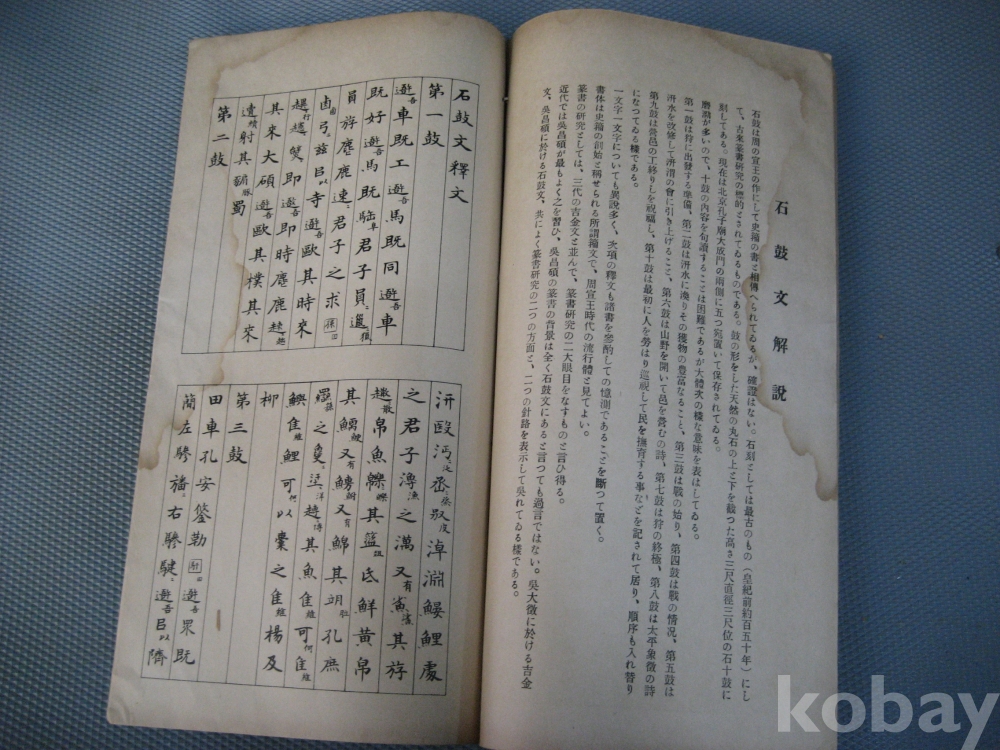 石鼓文解説
石鼓は周の宣王の作にして史籀の書と相傳へられてゐるが、確證はない。石刻としては最古のもの（皇紀前約百五十年）にし
て、古來篆書研究の標的とされてゐるものである。鼓の形をした天然の丸石の上と下を截つた高さ二尺直徑三尺位の石十鼓に
刻してある。現在は北京孔子廟大成門の兩側に五つ宛置いて保存されてゐる。
磨滅が多いので、十鼓の内容を句讀することは困難であるが大體次の樣な意味を表はしてゐる。
第一鼓は狩に出發する準備、第二鼓は汧水に漁りその獲物の豊富なること、第三鼓は戰の始り、第四鼓は戰の情況、第五鼓は
汧水を改修して汧渭の會に引き上げること、第六鼓は山野を開いて邑を營むの詩、第七鼓は狩の終極、第八鼓は太平象徴の詩
第九鼓は營邑の工終りしを祝福し、第十鼓は最初に人を勞はり巡祝して民を撫育する事などを記されて居り、順序も入れ替り
になつてゐる樣である。
一文字一文字についても異說多く、次項の釋文も諸書を參酌しての憶測であることを斷つて置く。
書体は史籀の創始と稱せられる所謂籀文で、周宣王時代の流行體と見てよい。
篆書の研究としては、三代の吉金文と並んで、篆書研究の二大眼目をなすものと言ひ得る。
近代では吳昌碩が最もよく之を習ひ、吳昌碩の篆書の背景は全く石鼓文にあると言つても過言ではない。吳大徵に於ける吉金
文、吳昌碩に於ける石鼓文、共によく篆書研究の二つの方面と、二つの針路を表示して吳れてゐる樣である。
石鼓文釋文
第一鼓
遊吾車既工遊吾馬既同遊吾車
既好遊吾馬既駐阜君子員邋獵
員斿麀鹿速君子之求
弓茲㠯寺遊吾敺其時來
即遊吾即時麀鹿趚
其來大碩遊吾敺其樸其來
射其蜀
第二鼓
汧殹沔沔烝彼淖淵鰋鯉處
之君子漁之澫又有鯊其斿
帛魚其氐鮮黃帛
其又有又有其孔庶
之其魚隹維可何隹維
鱮隹維鯉可何㠯以橐之隹維楊及
柳
第三鼓
田車孔安鋚勒遊吾眾既
簡左驂右驂遊吾㠯以隮
kobay